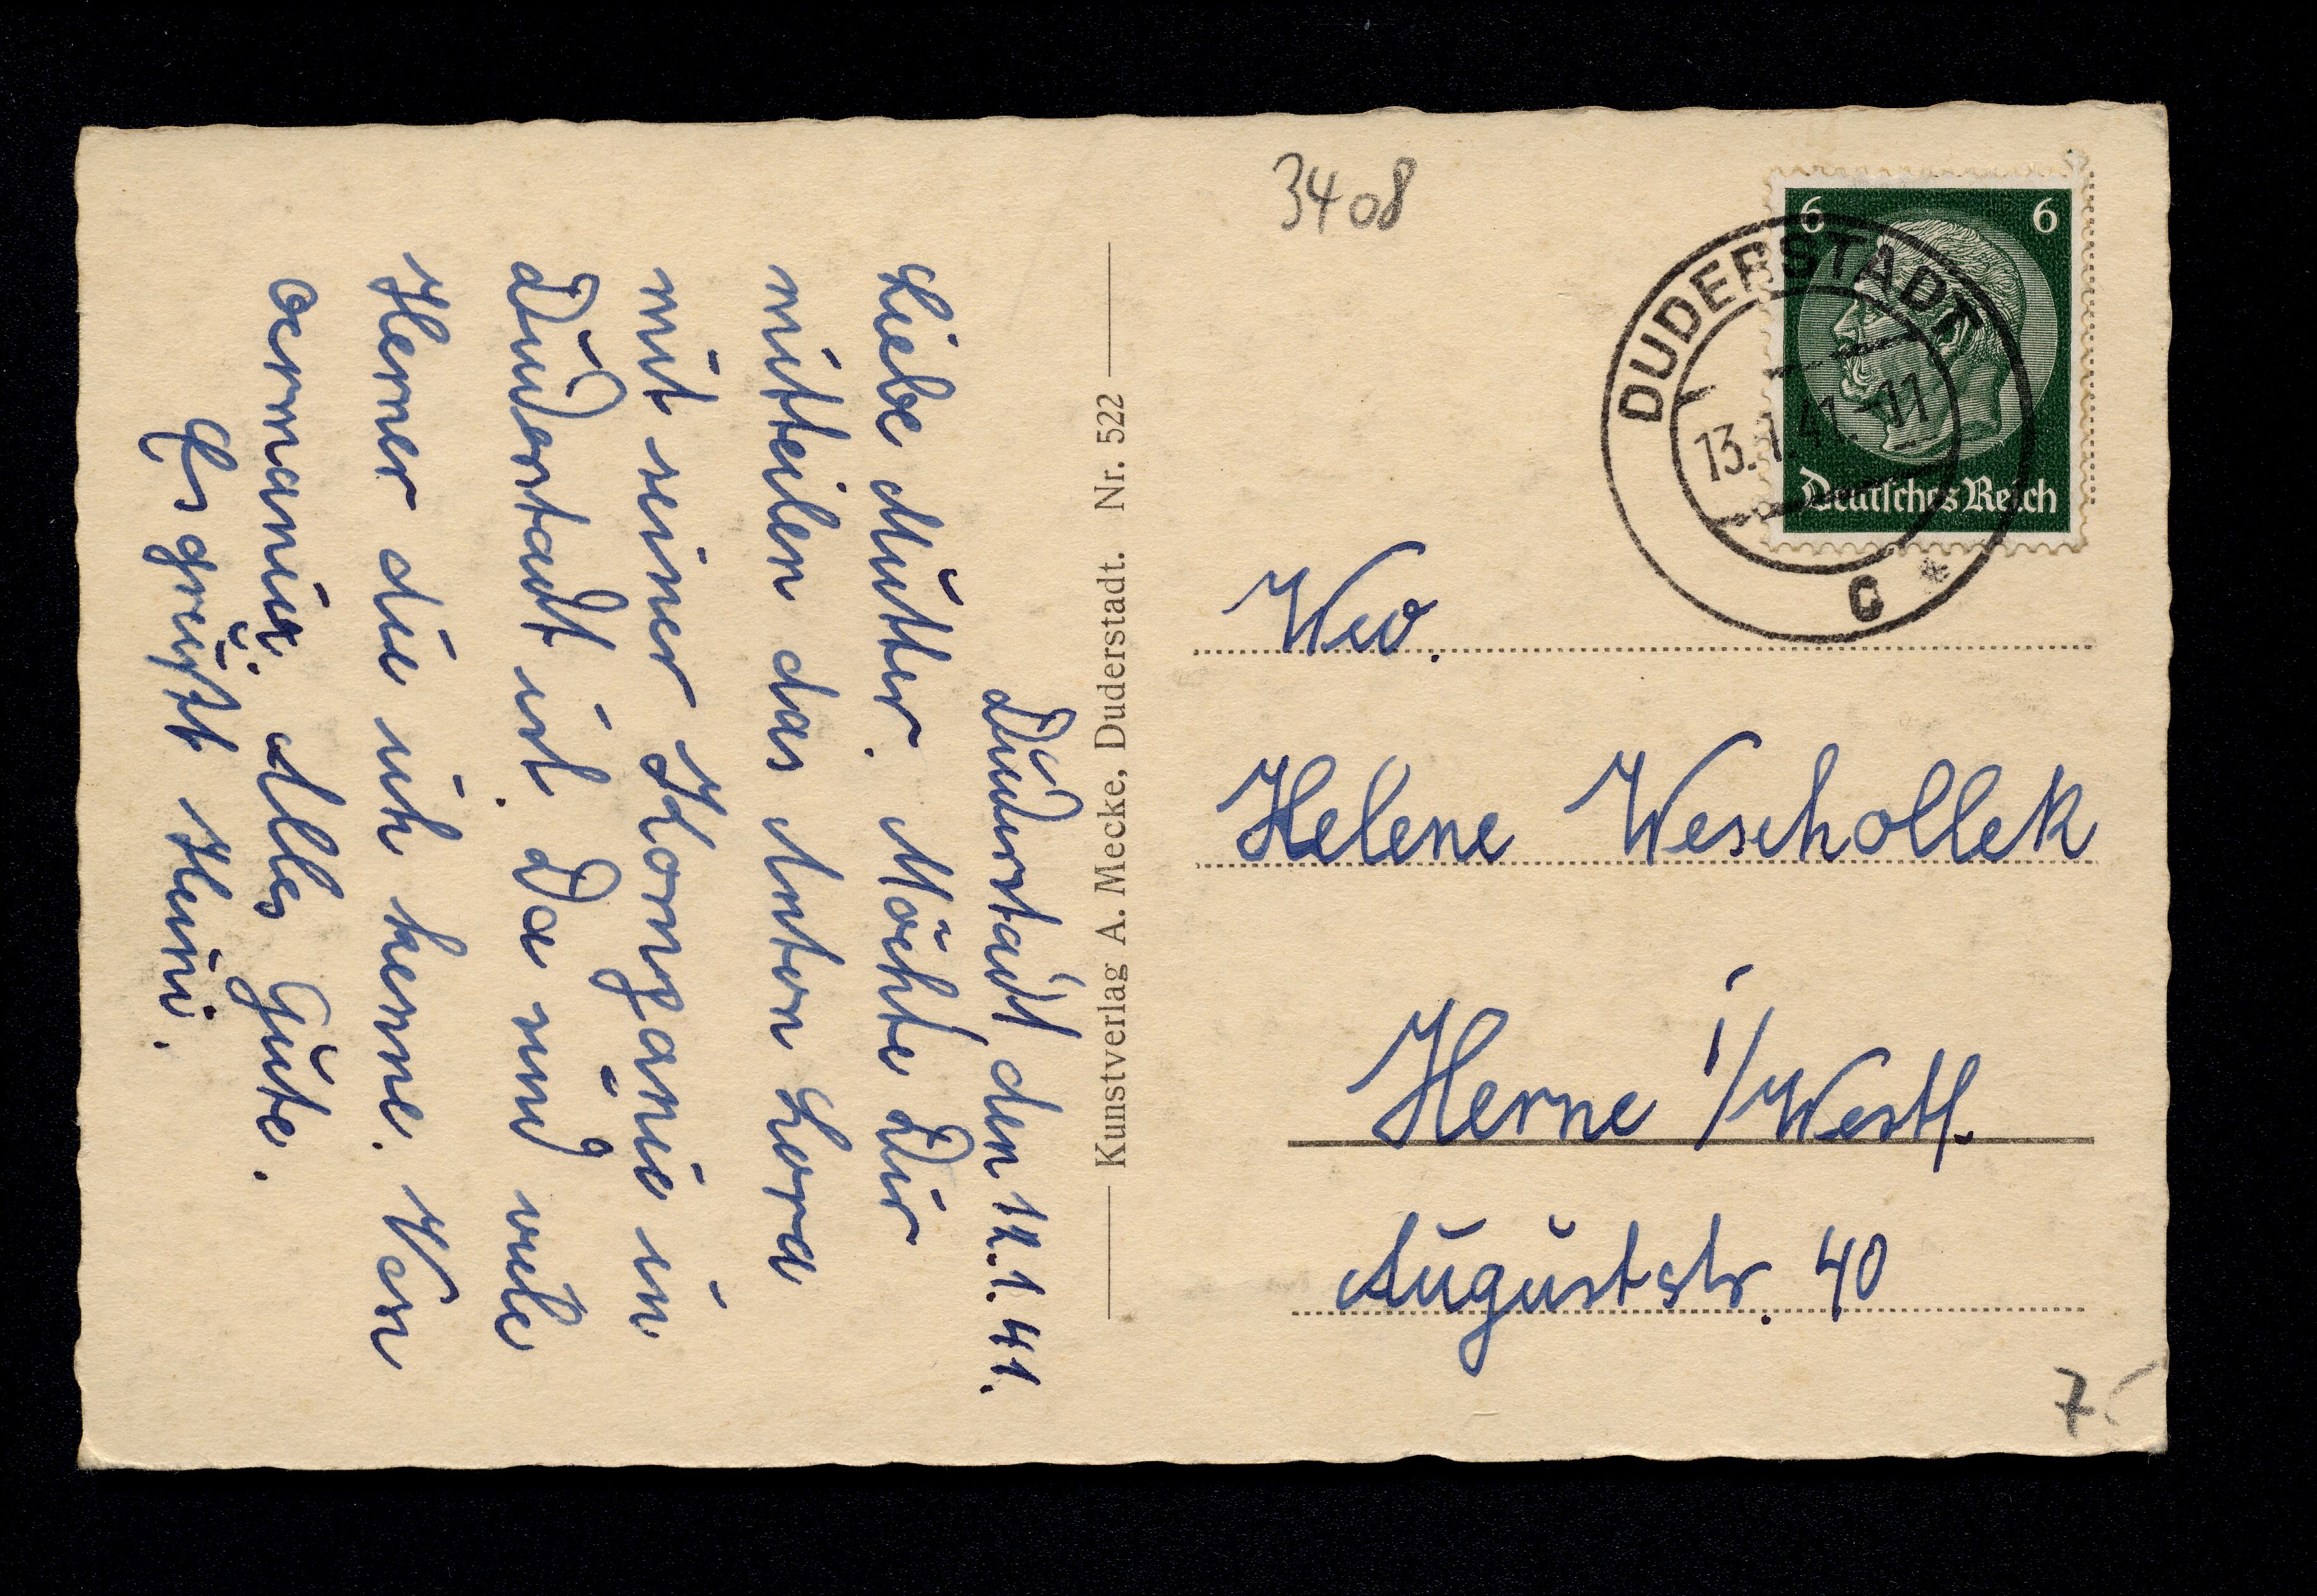 Duderstadt, den 12.1.41.
Liebe Mutter. Möchte Dir
mitteilen das Anton Lora
mit seiner Kompanie in
Duderstadt ist. Da sind viele
Herner die ich kenne. Von
Alles Gute.
Es grüßt Heini.
Kunstverlag A. Mecke, Duderstadt. Nr. 522
3408
6 6
Deutsches Reich
DUDERSTADT
13.1.41.-11
c *
Ww.
Helene Weschollek
Herne i/Westf.
Auguststr. 40
7